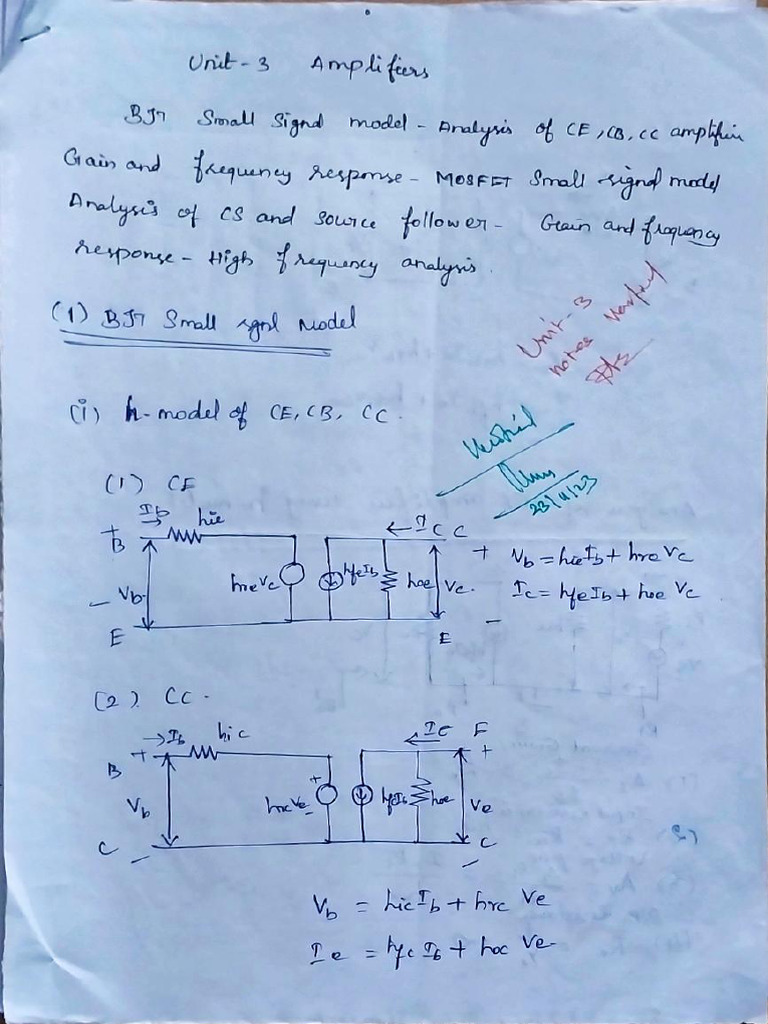 Unit-3 Amplifiers
BJT Small Signal model - Analysis of CE, CB, CC amplifier
Gain and frequency response - MOSFET Small signal model
Analysis of CS and source follower - Gain and frequency
response - High frequency analysis.
(1) BJT Small sgnl Model
Unit-3
notes
(i) h-model of CE, CB, CC.
23/11/23
(1) CE
Ib hie
+ B
← IC C
+
Vb = hie Ib + hre Vc
hreVc hfeIb hoe Vc.
Ic = hfe Ib + hoe Vc
- Vb
E
E
-
(2) CC.
→Ib hic
← IE E
B +
+
Vb
+
hrcVe -
hfcIb hoe Ve
C -
C
-
Vb = hic Ib + hrc Ve
Ie = hfc Ib + hoc Ve